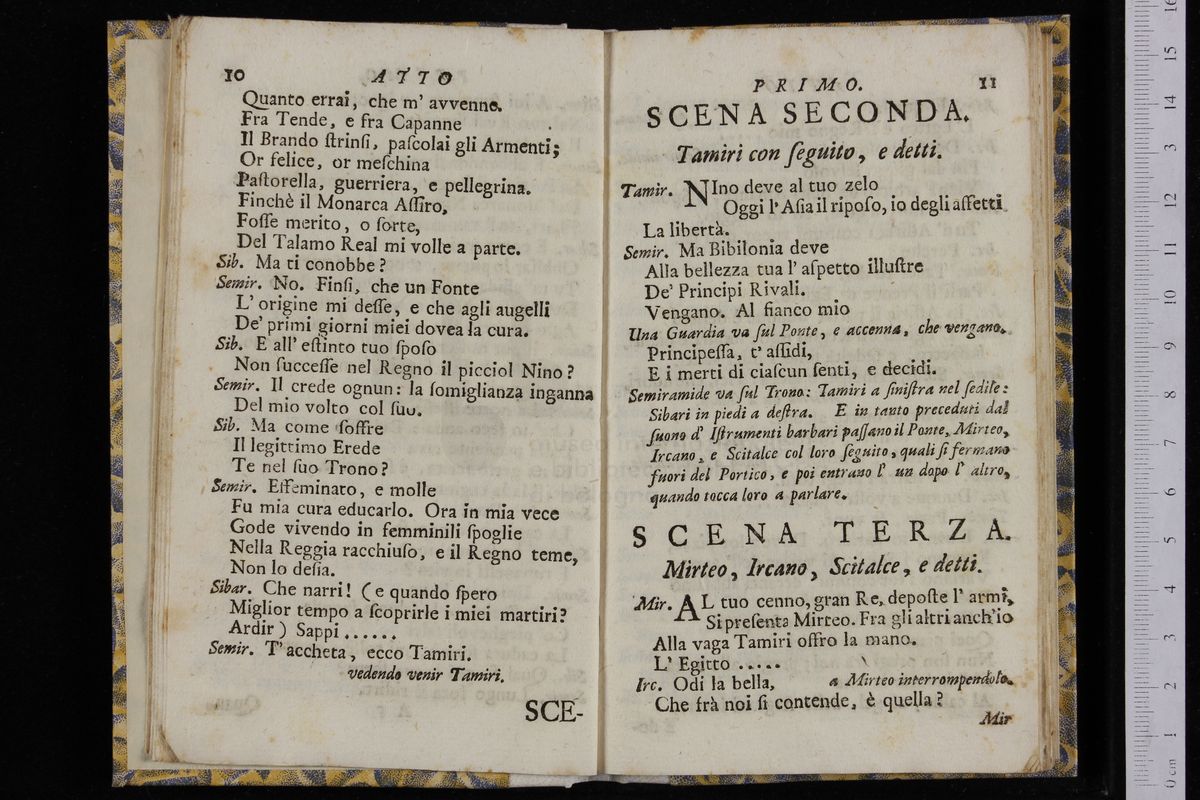 10 ATTO
Quanto errai, che m' avvenne.
Fra Tende, e fra Capanne
Il Brando ſtrinſi, paſcolai gli Armenti;
Or felice, or meſchina
Paſtorella, guerriera, e pellegrina.
Finchè il Monarca Aſſiro,
Foſſe merito, o ſorte,
Del Talamo Real mi volle a parte.
Sib. Ma ti conobbe?
Semir. No. Finſi, che un Fonte
L' origine mi deſſe, e che agli augelli
De' primi giorni miei dovea la cura.
Sib. E all' eſtinto tuo ſpoſo
Non ſucceſſe nel Regno il picciol Nino?
Semir. Il crede ognun: la ſomiglianza inganna
Del mio volto col ſuo.
Sib. Ma come ſoffre
Il legittimo Erede
Te nel ſuo Trono?
Semir. Effeminato, e molle
Fu mia cura educarlo. Ora in mia vece
Gode vivendo in femminili ſpoglie
Nella Reggia racchiuſo, e il Regno teme,
Non lo deſia.
Sibar. Che narri! (e quando ſpero
Miglior tempo a ſcoprirle i miei martiri?
Ardir) Sappi......
Semir. T' accheta, ecco Tamiri.
vedendo venir Tamiri.
SCE-
PRIMO. 11
SCENA SECONDA.
Tamiri con ſeguito, e detti.
Tamir. NIno deve al tuo zelo
Oggi l' Aſia il ripoſo, io degli affetti
La libertà.
Semir. Ma Bibilonia deve
Alla bellezza tua l' aſpetto illuſtre
De' Principi Rivali.
Vengano. Al fianco mio
Una Guardia va ſul Ponte, e accenna, che vengano.
Principeſſa, t' aſſidi,
E i merti di ciaſcun ſenti, e decidi.
Semiramide va ſul Trono: Tamiri a ſiniſtra nel ſedile:
Sibari in piedi a deſtra. E in tanto preceduti dal
ſuono d' Iſtrumenti barbari paſſano il Ponte, Mirteo,
Ircano, e Scitalce col loro ſeguito, quali ſi fermano
fuori del Portico, e poi entrano l' un dopo l' altro,
quando tocca loro a parlare.
SCENA TERZA.
Mirteo, Ircano, Scitalce, e detti.
Mir. AL tuo cenno, gran Re, depoſte l' armi,
Si preſenta Mirteo. Fra gli altri anch'io
Alla vaga Tamiri offro la mano.
L' Egitto .....
Irc. Odi la bella, a Mirteo interrompendolo.
Che frà noi ſi contende, è quella?
Mir